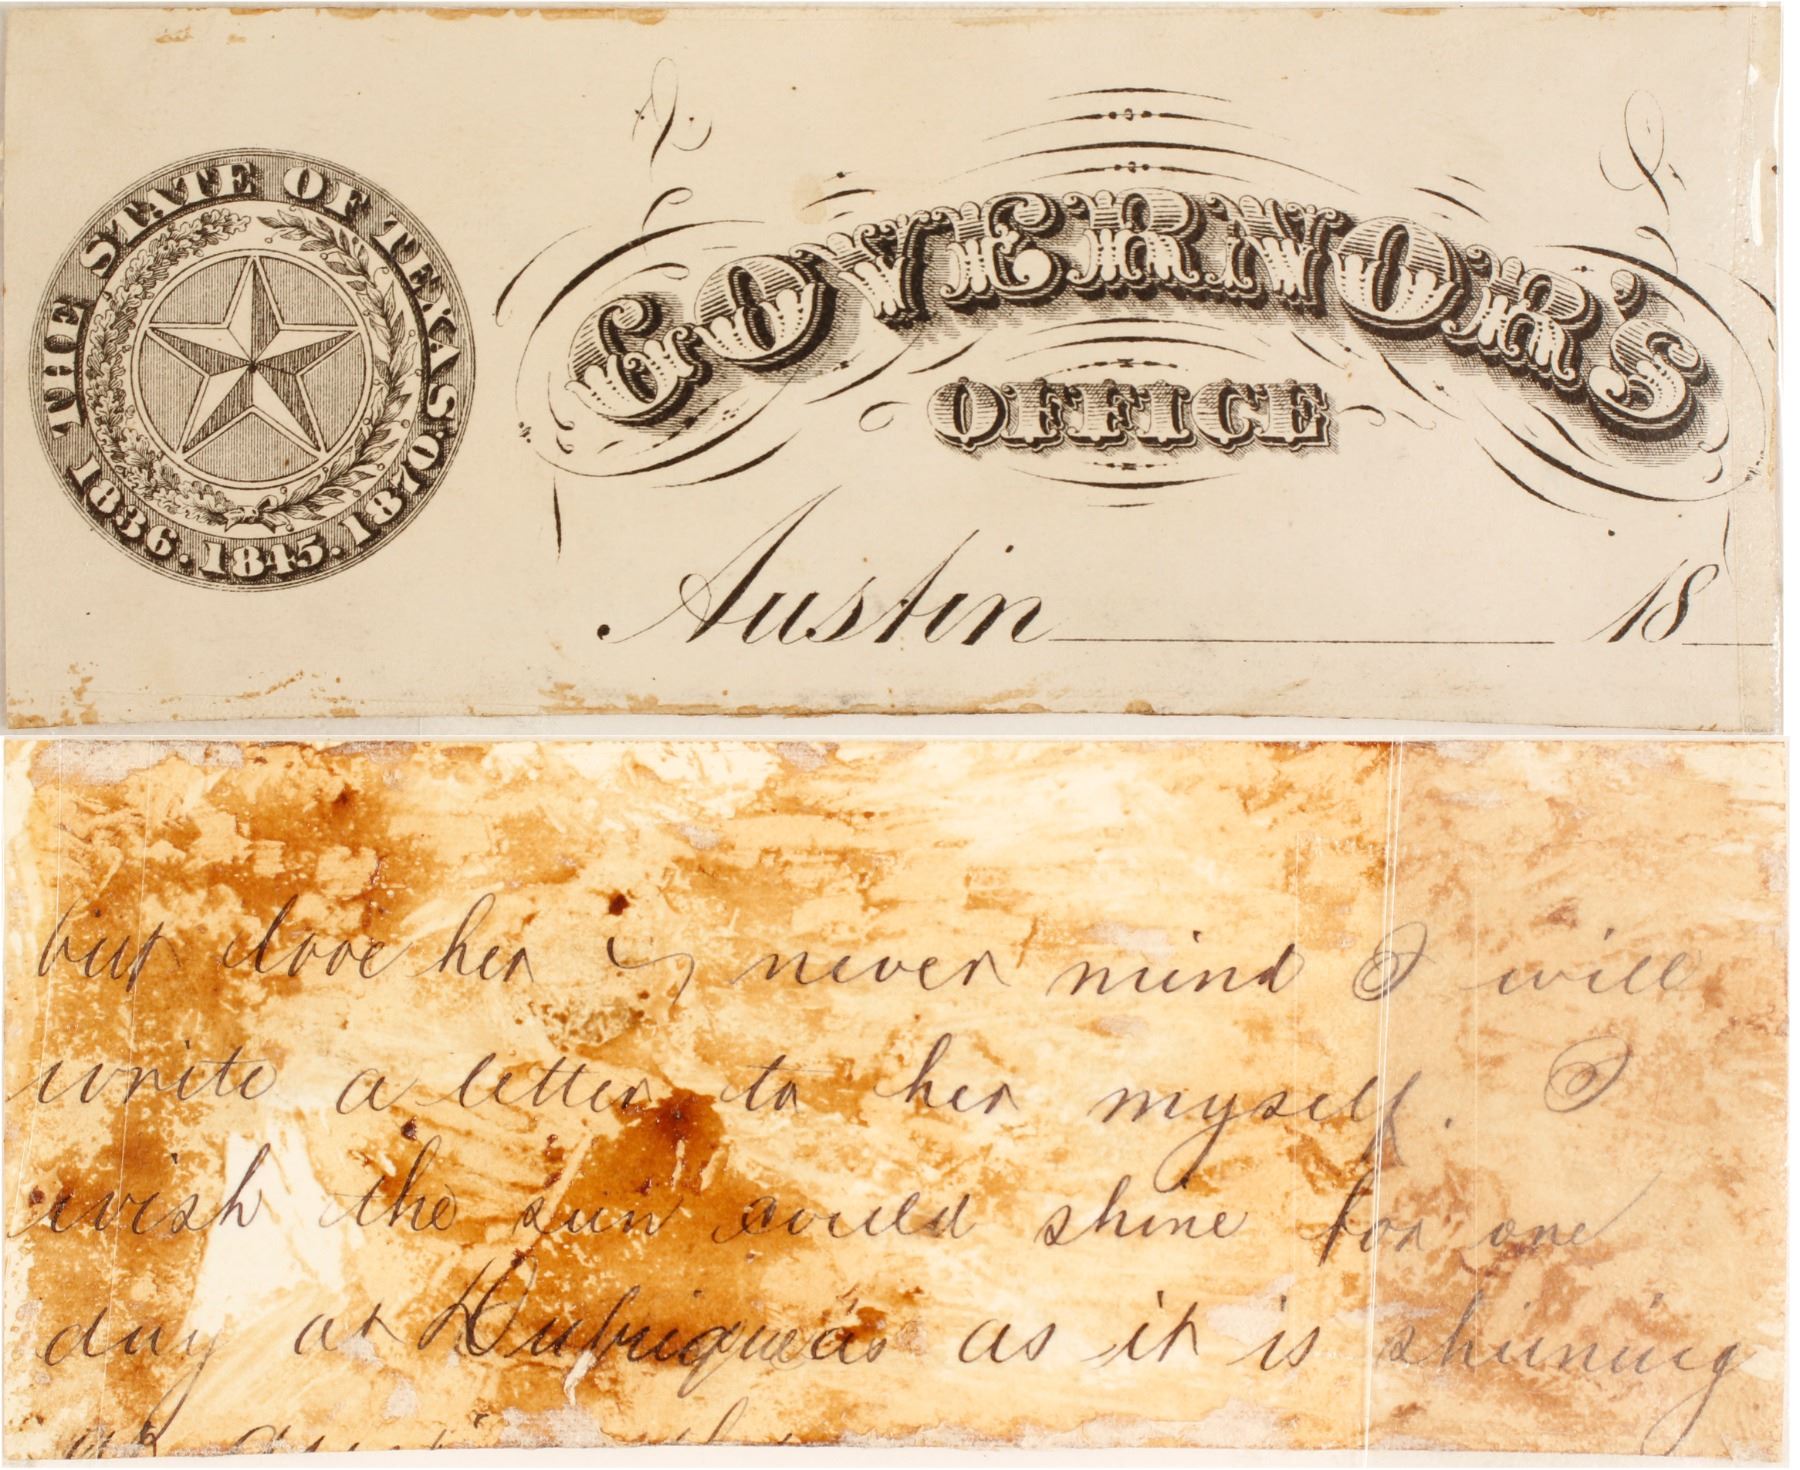 THE STATE OF TEXAS.
1836. 1845. 1870.
GOVERNOR'S
OFFICE
Austin 18
but love her never mind I will
write a letter to her myself. I
wish the sun would shine for one
day at as it is shining